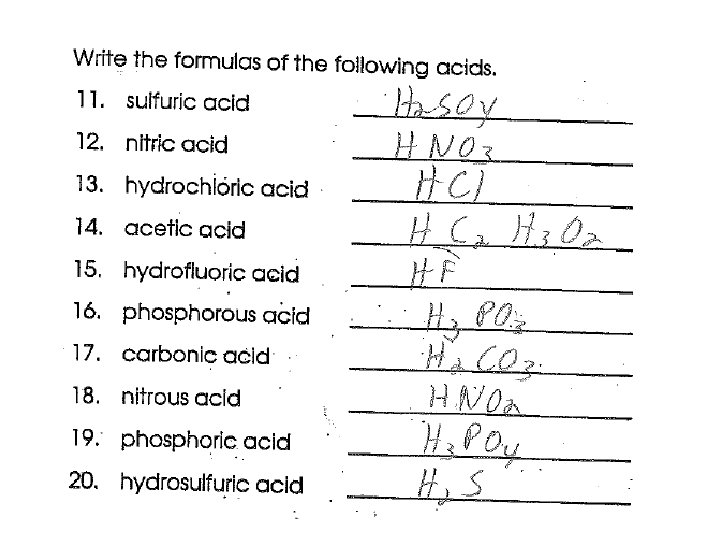 Write the formulas of the following acids.
11. sulfuric acid H₂SO₄
12. nitric acid HNO₃
13. hydrochloric acid HCl
14. acetic acid HC₂H₃O₂
15. hydrofluoric acid HF
16. phosphorous acid H₃PO₃
17. carbonic acid H₂CO₃
18. nitrous acid HNO₂
19. phosphoric acid H₃PO₄
20. hydrosulfuric acid H₂S